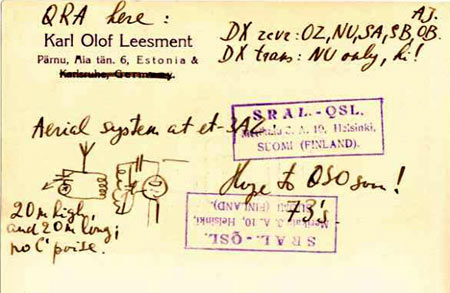 QRA here:
Karl Olof Leesment
Pärnu, Aia tän. 6, Estonia &
Karlsruhe, Germany.
AJ.
DX recve: OZ, NU, SA, SB, OB.
DX trans: NU only, hi!
S R A L. - QSL.
Merikatu J. A. 10, Helsinki,
SUOMI (FINLAND).
Aerial system at et-3AZ
20 m high,
and 20 m long;
no C' poise.
Hope to QSO soon!
73's
S R A L. - QSL.
Merikatu J. A. 10, Helsinki,
SUOMI (FINLAND).